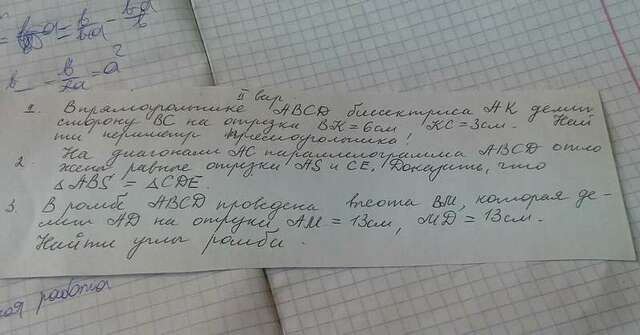 II вар.
1. В прямоугольнике ABCD биссектриса AK делит
сторону BC на отрезки BK = 6см KC = 3см. Най
ти периметр прямоугольника!
2. На диагонали AC параллелограмма ABCD отло
жены равные отрезки AS и CE. Доказать, что
△ABS = △CDE.
3. В ромбе ABCD проведена высота BM, которая де-
лит AD на отрезки AM = 13см, MD = 13см.
Найти углы ромба.
ная работа